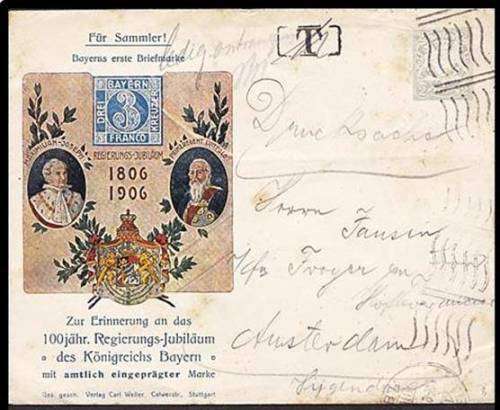 Für Sammler!
Bayerns erste Briefmarke
T
BAYERN
DREI
3
KREUZER
FRANCO
MAXIMILIAN-JOSEPH I.
REGIERUNGS-JUBILÄUM
PRINZREGENT LUITPOLD
1806
1906
Drucksache
Herrn Jansen
Amsterdam
Zur Erinnerung an das
100jähr. Regierungs-Jubiläum
des Königreichs Bayern
mit amtlich eingeprägter Marke
Ges. gesch. Verlag Carl Weller, Calwerstr., Stuttgart